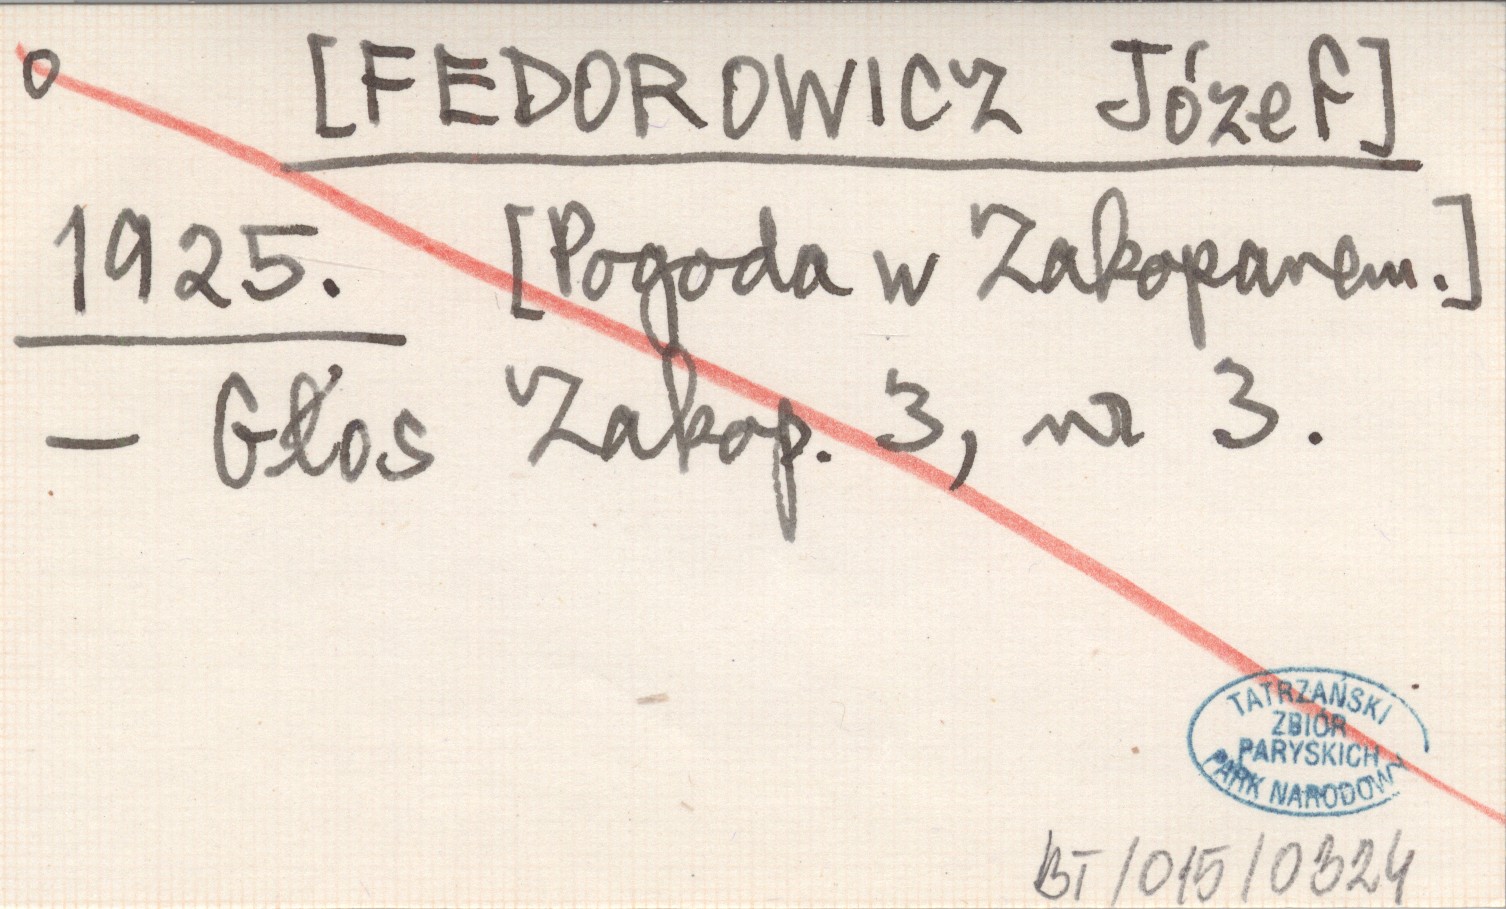 o [FEDOROWICZ Józef]
1925. [Pogoda w Zakopanem.]
— Głos Zakop. 3, nr 3.
TATRZAŃSKI
ZBIÓR
PARYSKICH
PARK NARODOWY
BT/015/0324